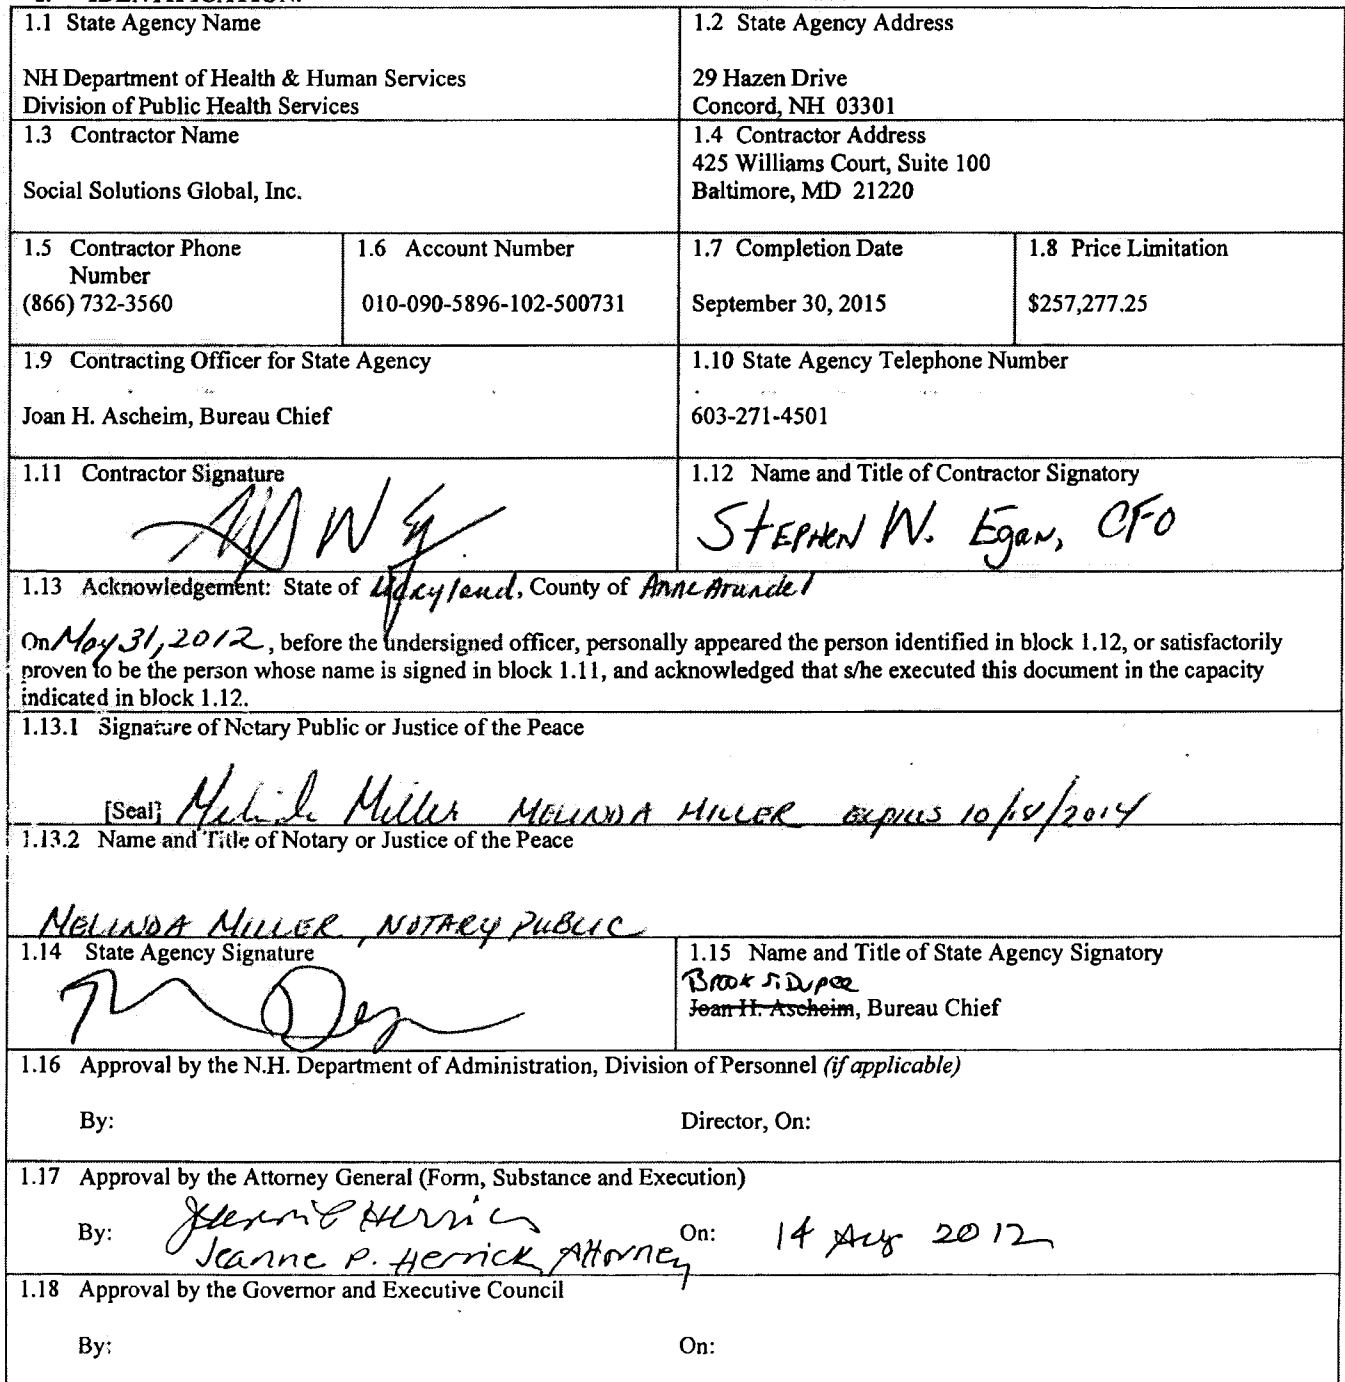 1.1 State Agency Name
NH Department of Health & Human Services
Division of Public Health Services
1.2 State Agency Address
29 Hazen Drive
Concord, NH 03301
1.3 Contractor Name
Social Solutions Global, Inc.
1.4 Contractor Address
425 Williams Court, Suite 100
Baltimore, MD 21220
1.5 Contractor Phone
Number
(866) 732-3560
1.6 Account Number
010-090-5896-102-500731
1.7 Completion Date
September 30, 2015
1.8 Price Limitation
$257,277.25
1.9 Contracting Officer for State Agency
Joan H. Ascheim, Bureau Chief
1.10 State Agency Telephone Number
603-271-4501
1.11 Contractor Signature
1.12 Name and Title of Contractor Signatory
STEPHEN W. Egan, CFO
1.13 Acknowledgement: State of Maryland, County of Anne Arundel
On May 31, 2012, before the undersigned officer, personally appeared the person identified in block 1.12, or satisfactorily
proven to be the person whose name is signed in block 1.11, and acknowledged that s/he executed this document in the capacity
indicated in block 1.12.
1.13.1 Signature of Notary Public or Justice of the Peace
[Seal] Melinda Miller MELINDA MILLER expires 10/18/2014
1.13.2 Name and Title of Notary or Justice of the Peace
MELINDA MILLER, NOTARY PUBLIC
1.14 State Agency Signature
1.15 Name and Title of State Agency Signatory
Brook S. Dupee
Joan H. Ascheim, Bureau Chief
1.16 Approval by the N.H. Department of Administration, Division of Personnel (if applicable)
By: Director, On:
1.17 Approval by the Attorney General (Form, Substance and Execution)
By: On: 14 Aug 2012
Jeanne P. Herrick, Attorney
1.18 Approval by the Governor and Executive Council
By: On: